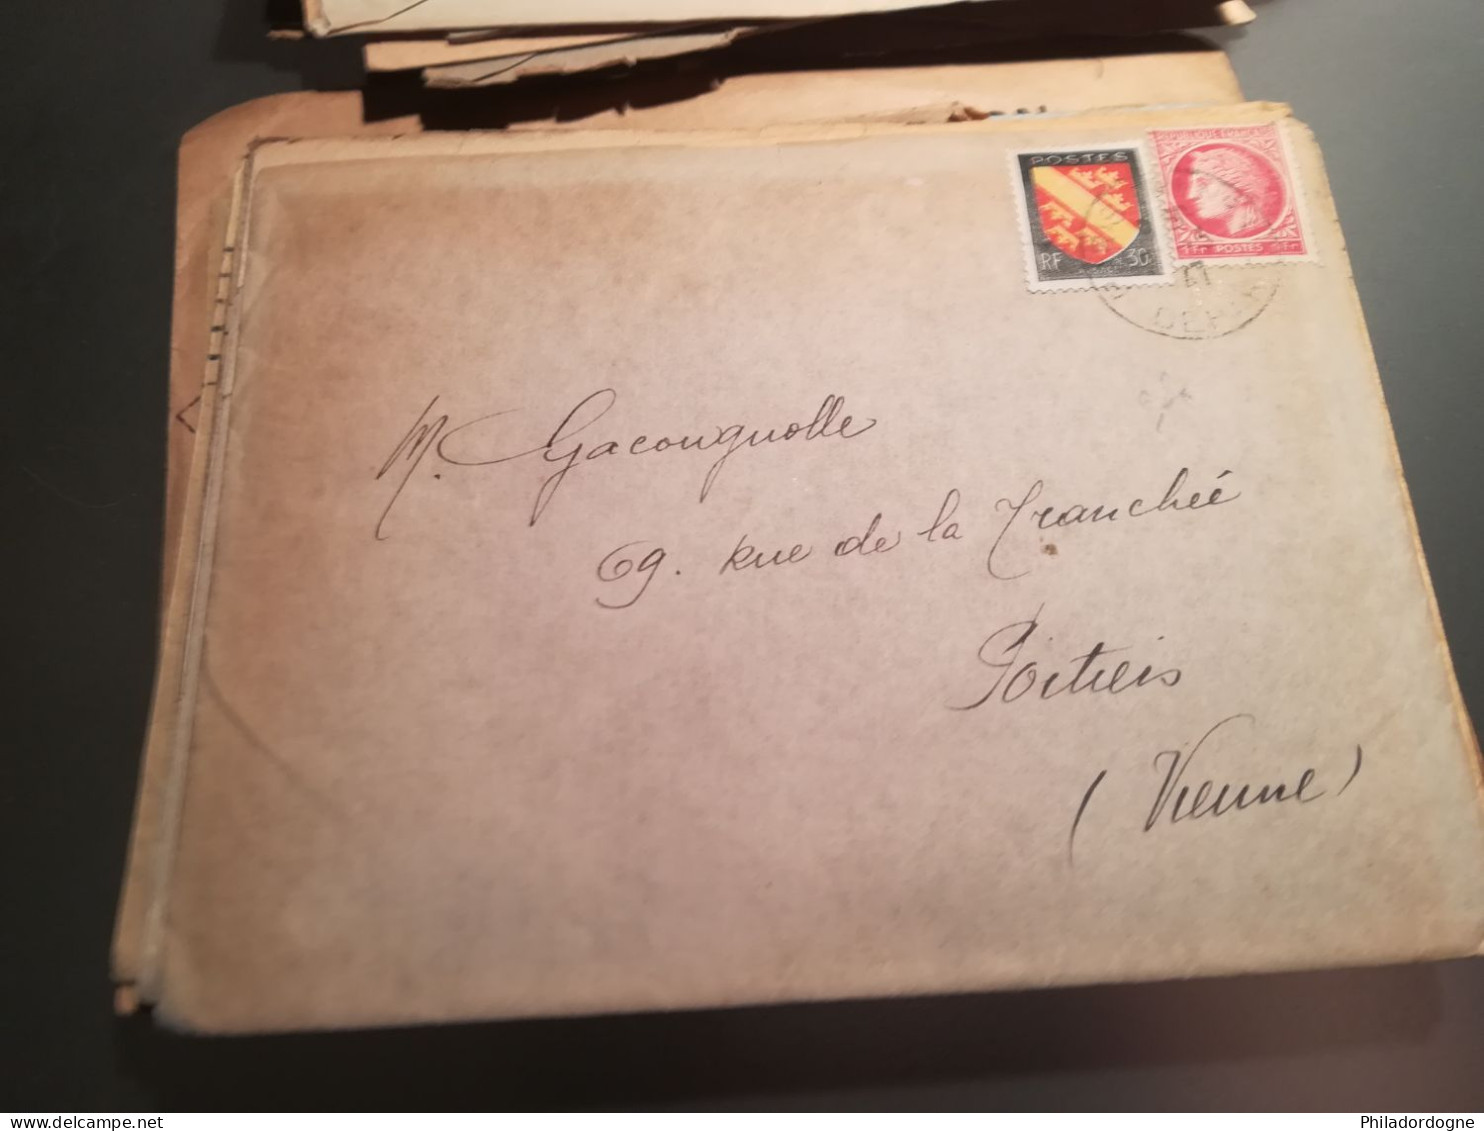 POSTES
RF 30
REPUBLIQUE FRANÇAISE
1Fr POSTES 1Fr
47
DEPART
M. Gacougnolle
69. rue de la Tranchée
Poitiers
(Vienne)
delcampe.net
Philadordogne